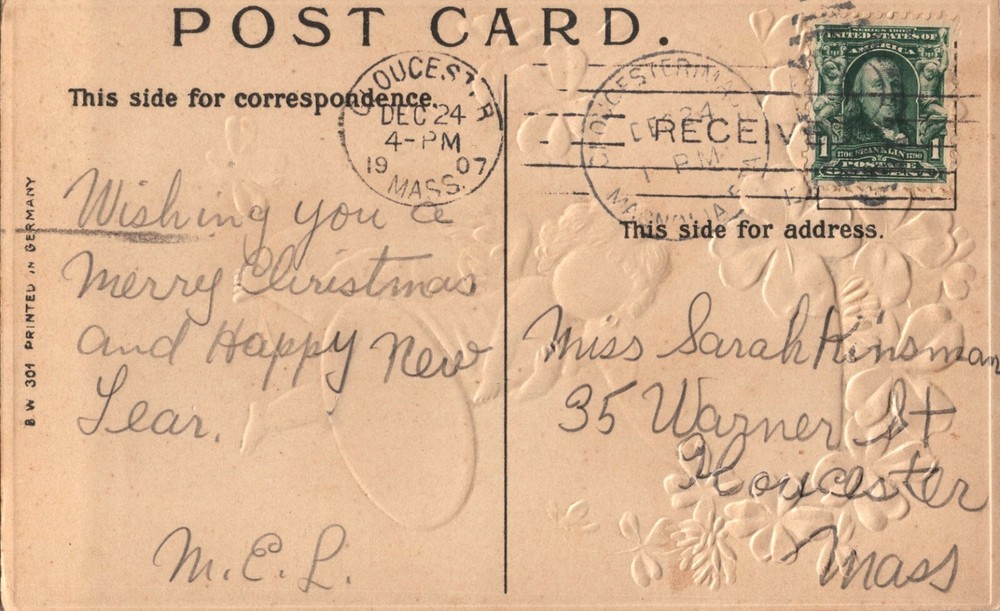 POST CARD.
This side for correspondence.
GLOUCESTER
DEC 24
4-PM
19 07
MASS.
GLOUCESTER, MASS.
DEC 24
1 PM
MAGNOLIA STA
RECEIVED
SERIES 1902
UNITED STATES OF
AMERICA
1706 FRANKLIN 1790
1 POSTAGE 1
ONE CENT
This side for address.
B.W 301 PRINTED IN GERMANY
Wishing you a
Merry Christmas
and Happy New
Year.
M.E.L.
Miss Sarah Kinsman
35 Warner St
Gloucester
Mass